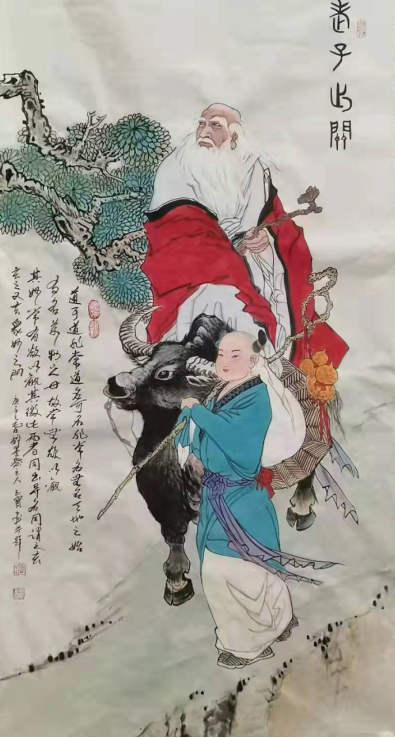 老子出關
道可道非常道名可名非常名無名天地之始
有名萬物之母故常無欲以觀
其妙常有欲以觀其徼此兩者同出異名同謂之玄
玄之又玄眾妙之門